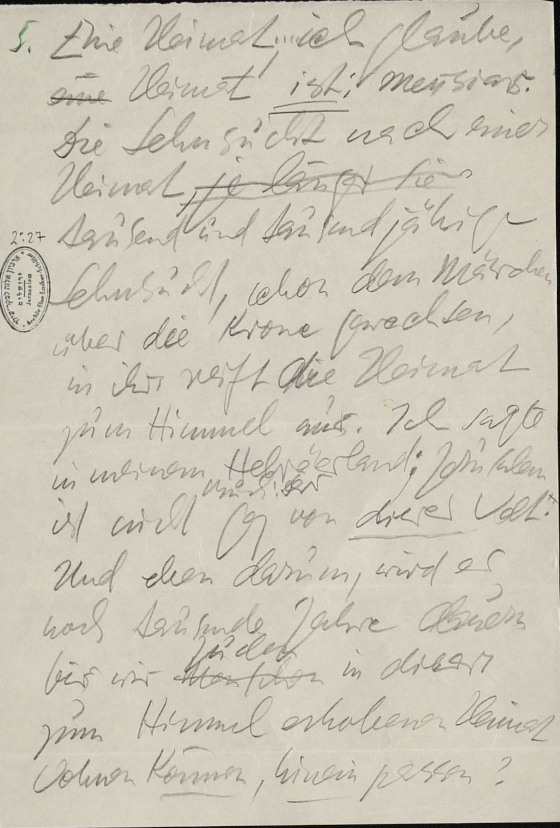 5. Eine Heimat, ich glaube,
eine Heimat ist:
Die Sehnsucht nach einer
Heimat, je länger die
tausend und tausendjährige
2:27
Sehnsucht, schon dem Märchen
über die Krone gewachsen,
in ihr reift die Heimat
zum Himmel aus. Ich sagte
in meinem Hebräerland: Jerusalem
ist nicht von dieser Welt.
Und eben darum, wird es
noch tausende Jahre dauern
Juden
bis wir Menschen in dieser
zum Himmel erhobenen Heimat
wohnen können, hinein passen?
Jerusalem